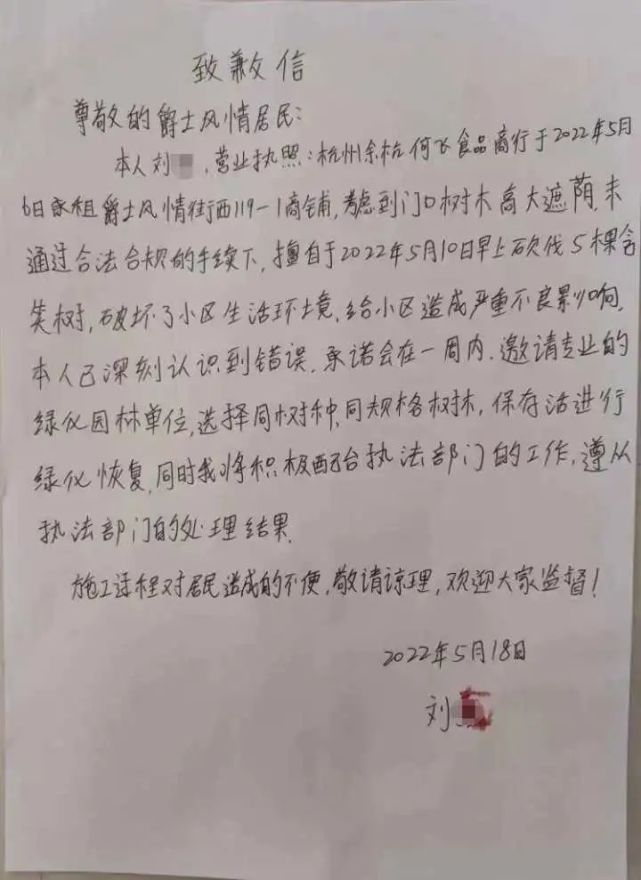 致歉信
尊敬的爵士风情居民:
本人刘 ,营业执照:杭州余杭何飞食品商行于2022年5月
6日承租爵士风情街西119-1商铺,考虑到门口树木高大遮荫,未
通过合法合规的手续下,擅自于2022年5月10日早上砍伐5棵含
笑树,破坏了小区生活环境,给小区造成严重不良影响,
本人已深刻认识到错误,承诺会在一周内,邀请专业的
绿化园林单位,选择同树种,同规格树木,保存活进行
绿化恢复,同时我将积极配合执法部门的工作,遵从
执法部门的处理结果.
施工过程对居民造成的不便,敬请谅理,欢迎大家监督!
2022年5月18日
刘